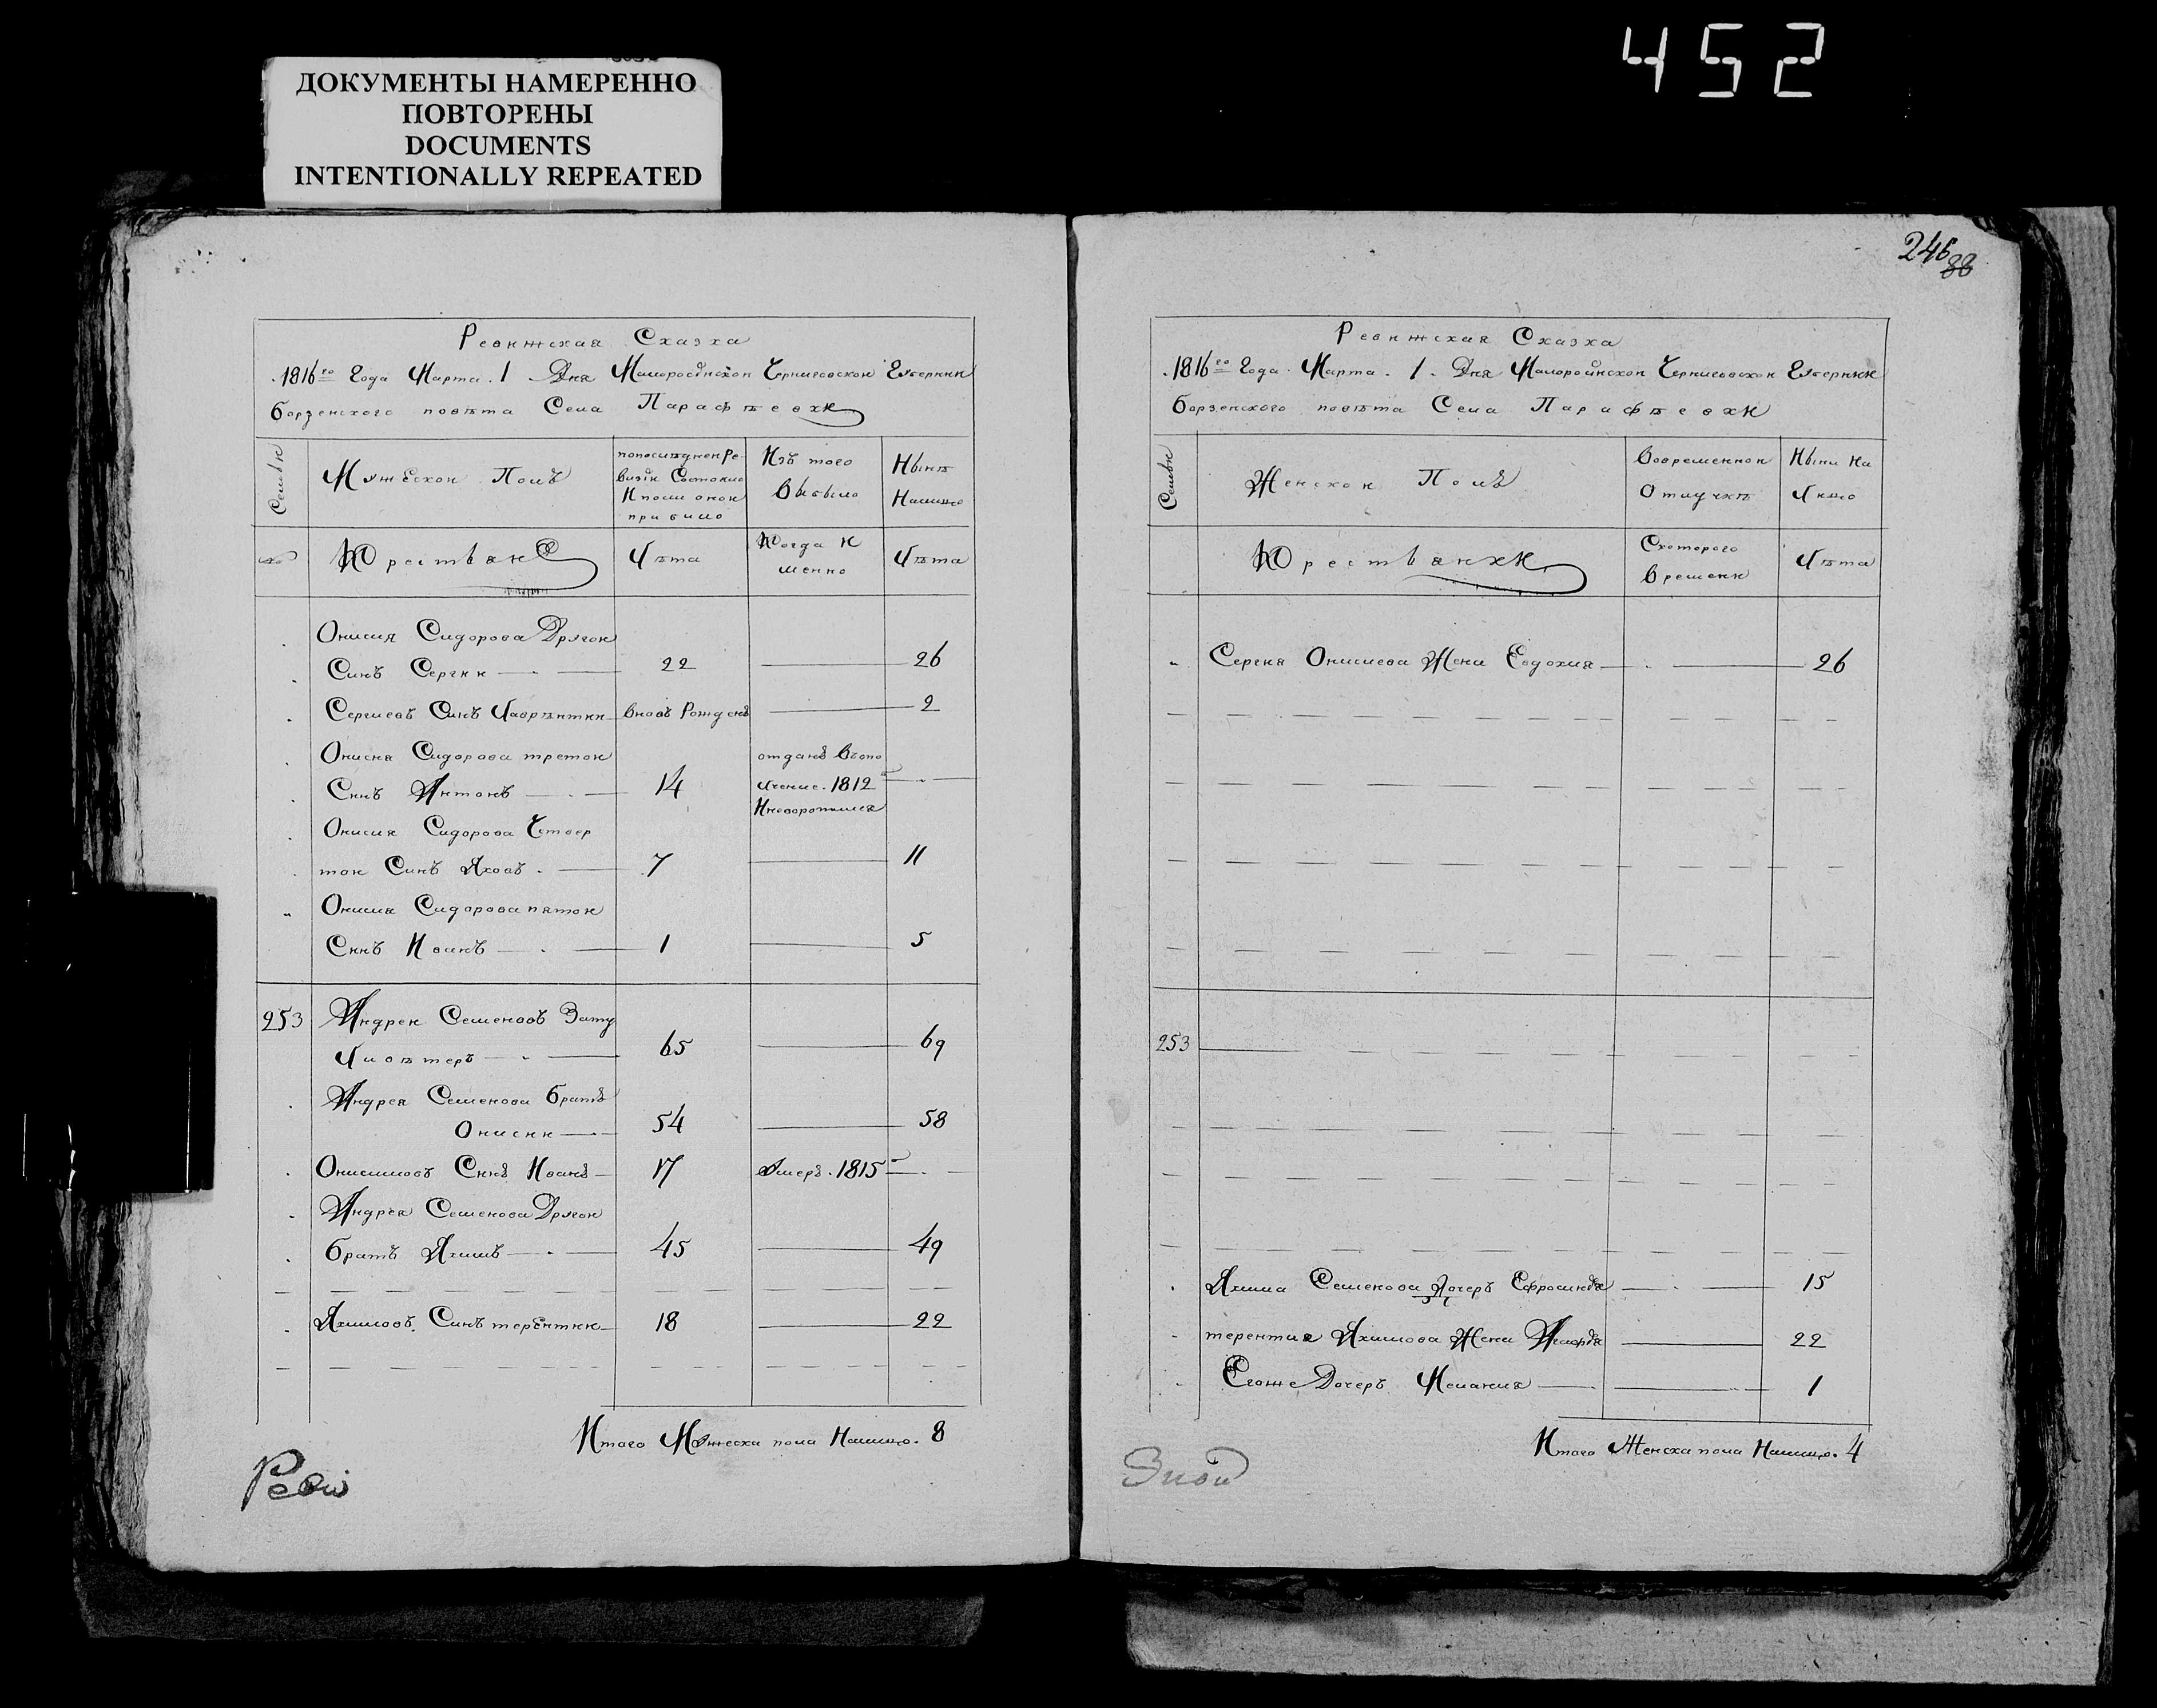 452
ДОКУМЕНТЫ НАМЕРЕННО
ПОВТОРЕНЫ
DOCUMENTS
INTENTIONALLY REPEATED
Ревижская Сказка
1816го Года Марта 1 Дня Малоросійской Черниговской Губернии
борзенского повѣта Села Парафѣевки
Семьи
Мужеской Полъ
попоследней Ре-
визіи Состояло
И после оной
прибило
Изъ того
Выбыло
Нынѣ
Налицо
Крестьяне
Лѣта
Когда И
менно
Лѣта
Онисия Сидорова Другой
Синъ Сергий 22 26
Сергиевъ Синъ Лаврѣнтий вновь Рожденъ 2
Онисия Сидорова третой
Синъ Антонъ 14
отданъ Вопо
лчение 1812
Иневоротился
Онисия Сидорова Четвер
той Синъ Яковъ 7 11
Онисия Сидорова пятой
Синъ Иванъ 1 5
253 Андрей Семеновъ Зату
65 69
Андрея Семенова братъ
Онисий 54 58
Онисимовъ Синъ Иванъ 17 Умеръ 1815
Андрея Семенова Другой
братъ Якимъ 45 49
Якимовъ Синъ терентий 18 22
Итого Мужеска пола Налицо 8
Реви
246
88
Ревижская Сказка
1816го Года Марта 1 Дня Малоросійской Черниговской Губернии
борзенского повѣта Села Парафѣевки
Семьи
Женской Полъ
Вовременной
Отлучкѣ
Ныни На
Лицо
Крестьянки
Скоторого
Времени
Лѣта
Сергия Онисиева Жена Евдокия 26
253
Якима Семенова Дочеръ Ефросиния 15
терентия Якимова Жена 22
Егоже Дочеръ Мелания 1
Итого Женска пола Налицо 4